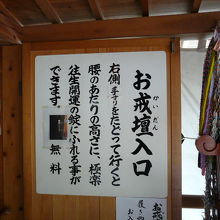 お戒壇入口
かいだん
右側手すりをたどって行くと
腰のあたりの高さに、極楽
往生開運の錠にふれる事が
できます。
無料
お戒